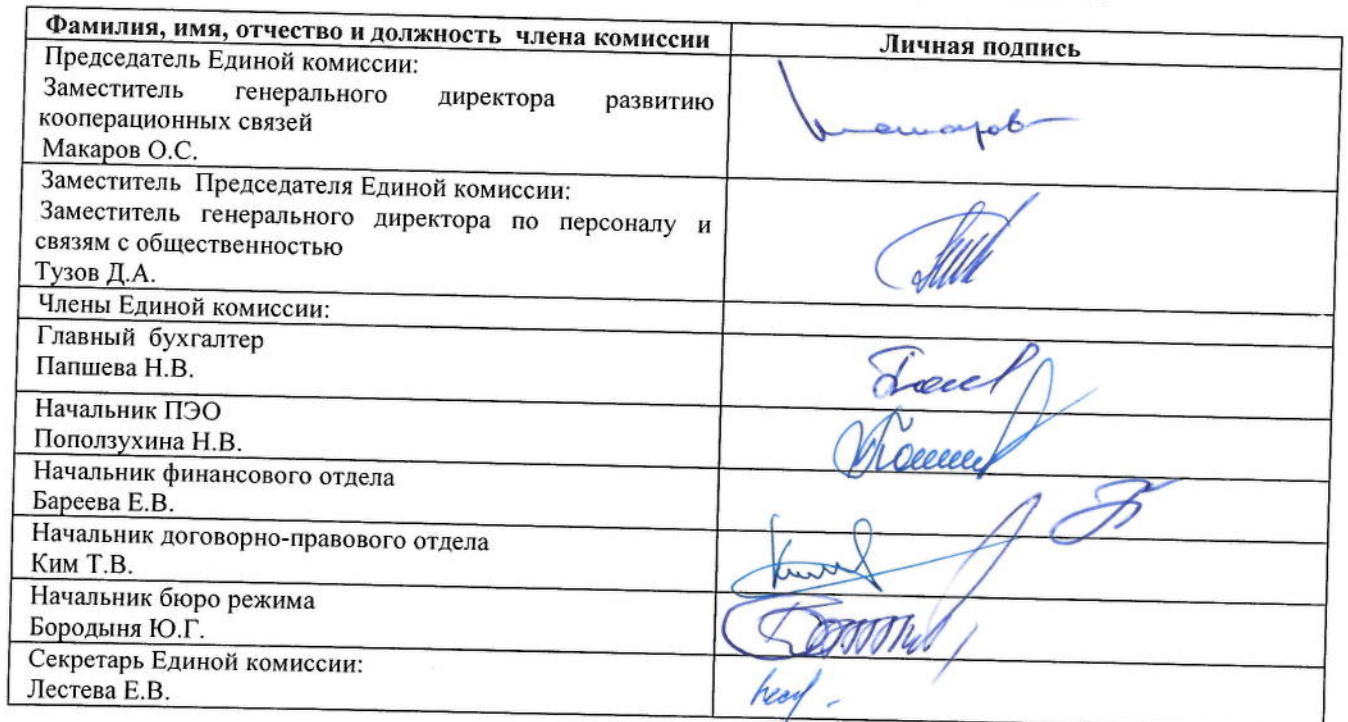 Фамилия, имя, отчество и должность члена комиссии Личная подпись
Председатель Единой комиссии:
Заместитель генерального директора развитию
кооперационных связей
Макаров О.С.
Заместитель Председателя Единой комиссии:
Заместитель генерального директора по персоналу и
связям с общественностью
Тузов Д.А.
Члены Единой комиссии:
Главный бухгалтер
Папшева Н.В.
Начальник ПЭО
Поползухина Н.В.
Начальник финансового отдела
Бареева Е.В.
Начальник договорно-правового отдела
Ким Т.В.
Начальник бюро режима
Бородыня Ю.Г.
Секретарь Единой комиссии:
Лестева Е.В.